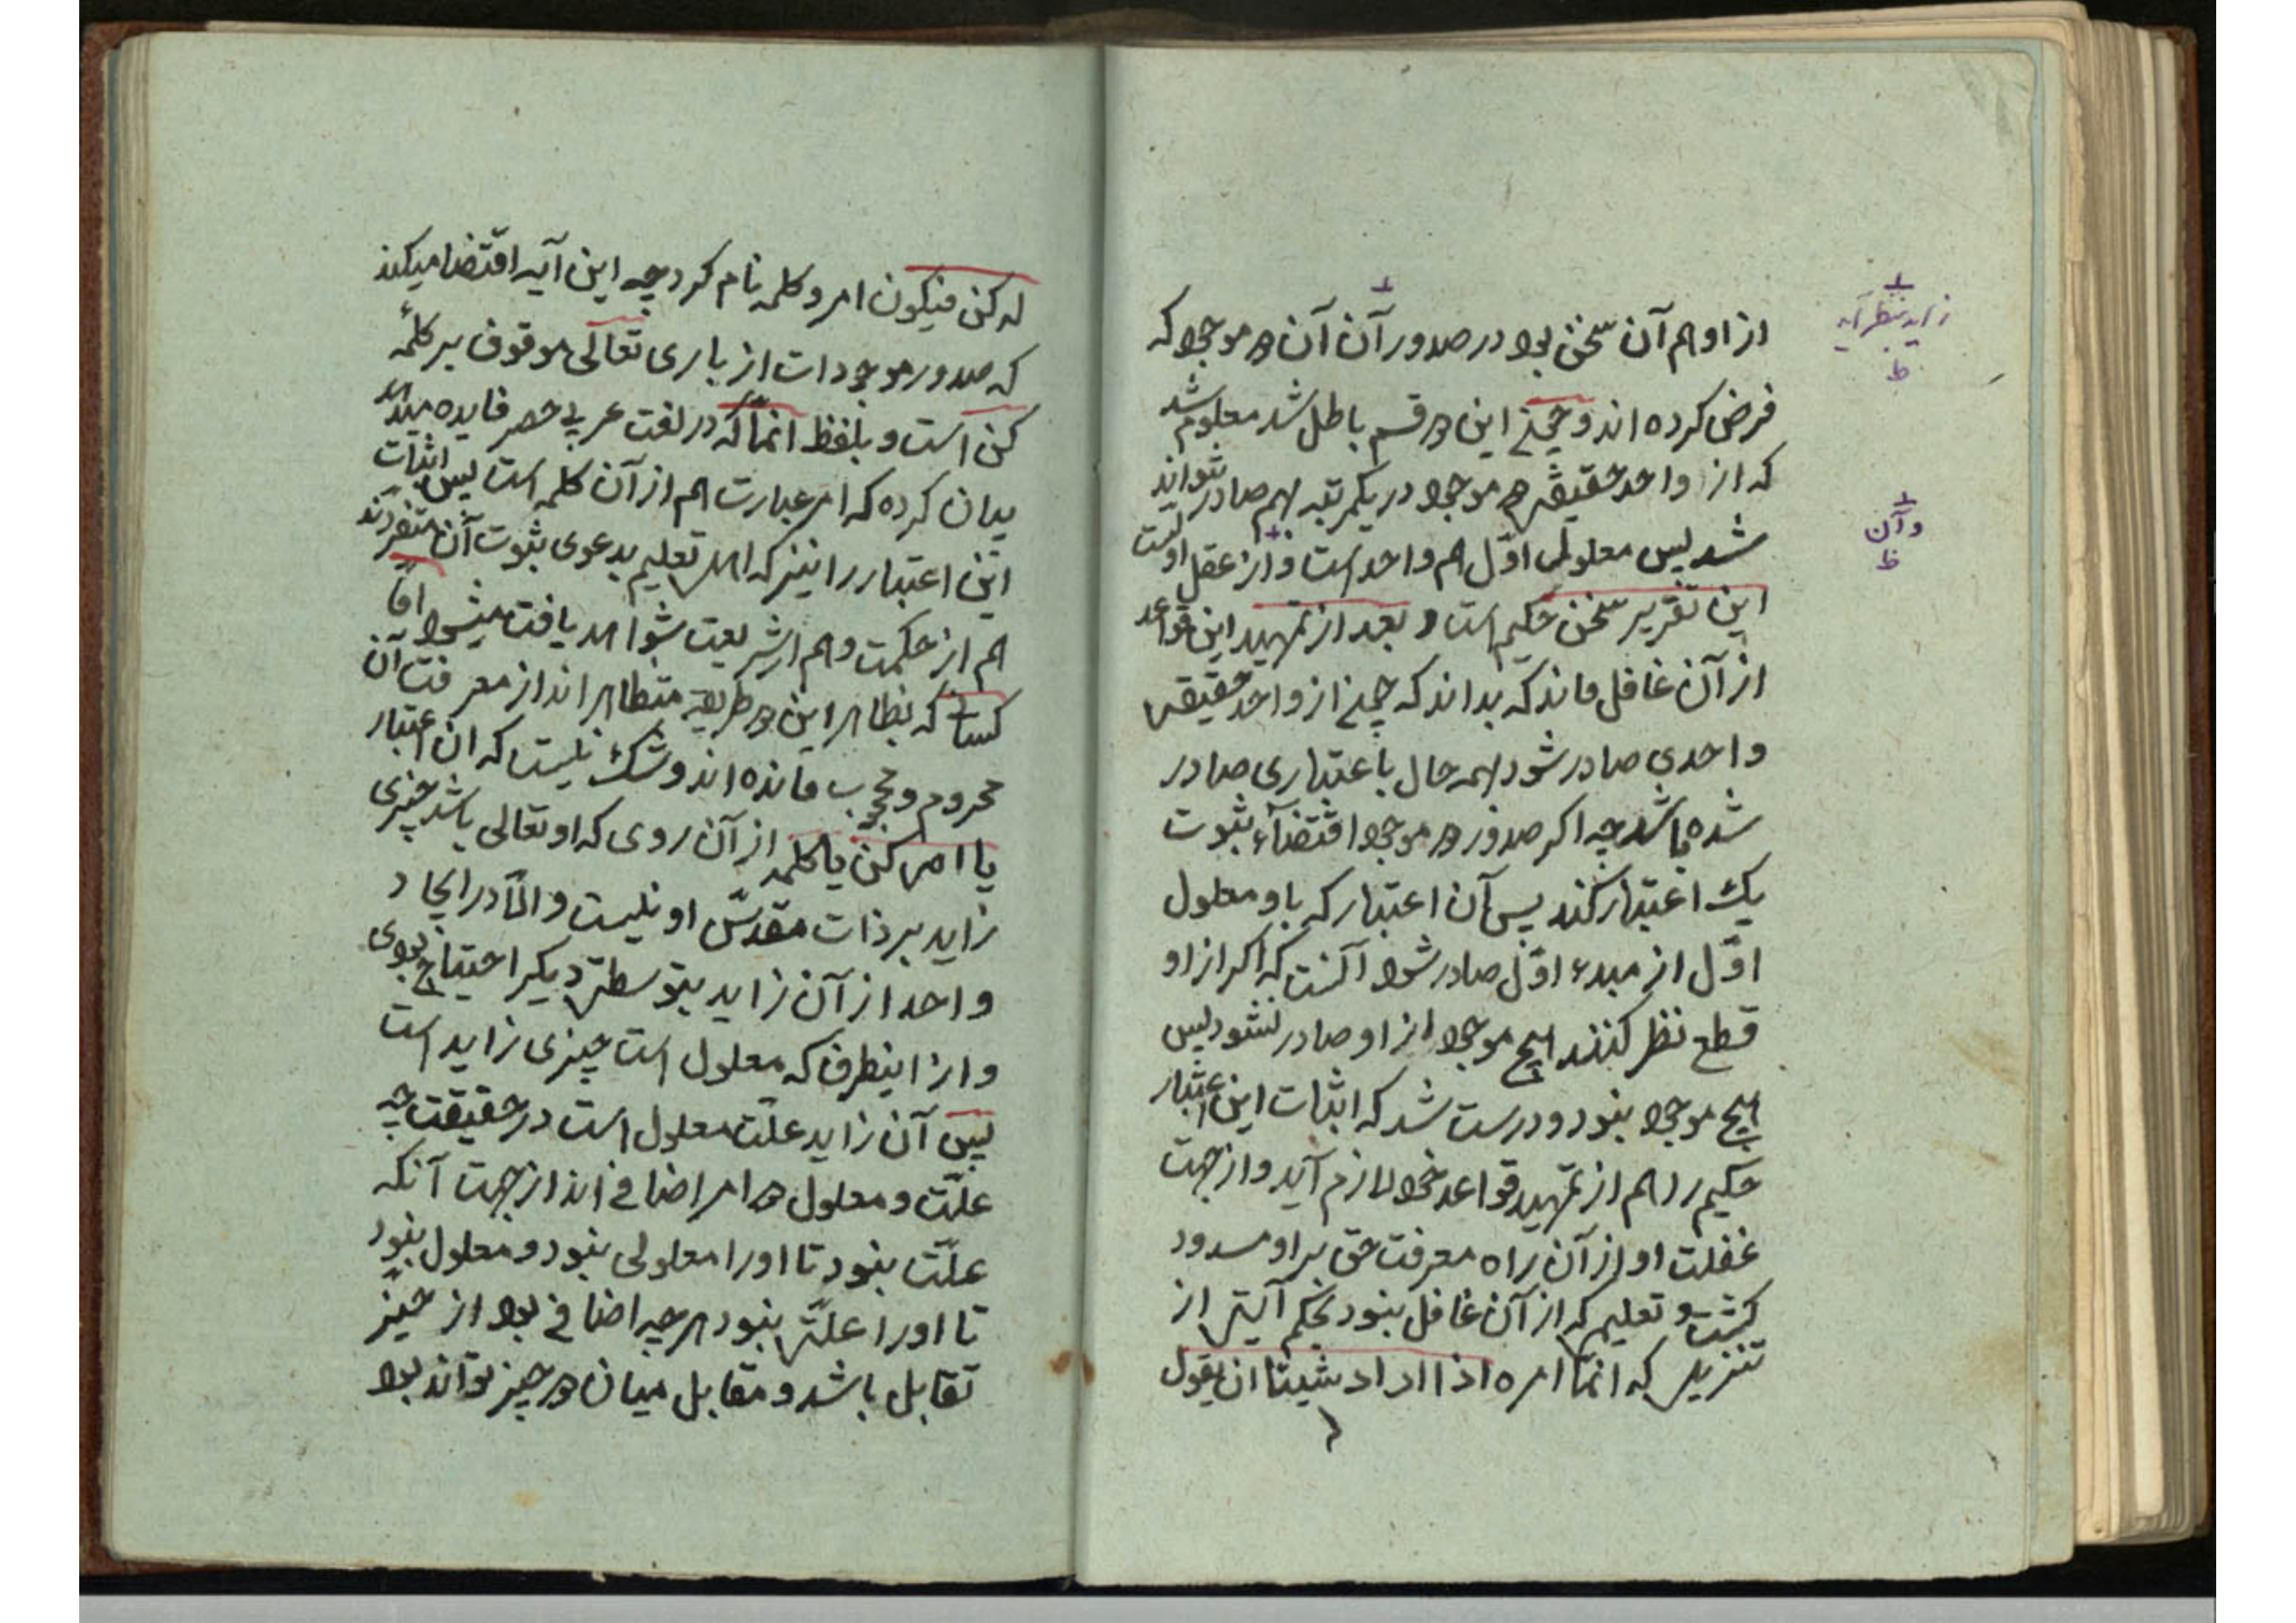 از او هم آن سخن بود در صدور آن آن دو موجود که
فرض کرده اند و چون این دو قسم باطل شد معلوم شد
که از واحد حقیقی دو موجود در یکمرتبه بهم صادر نتواند
شد پس معلول اول هم واحد است و از عقل اولست
این تقریر سخن حکیم است و بعد از تمهید این قواعد
از آن غافل ماند که بداند که چون از واحد حقیقی
واحدی صادر شود بهمه حال باعتباری صادر
شده باشد چه اگر صدور دو موجود اقتضاء ثبوت
یک اعتبار کند پس آن اعتبار که باو معلول
اول از مبدء اول صادر شود آنست که اگر از او
قطع نظر کنند هیچ موجود از او صادر نشود پس
هیچ موجود نبود و درست شد که اثبات این اعتبار
حکیم را هم از تمهید قواعد خود لازم آید و از جهت
غفلت او از آن راه معرفت حق بر او مسدود
گشت و تعلیم که از آن غافل نبود بحکم آیتی از
تنزیل که انما امره اذا اراد شیئا ان یقول
زاید بنظر آید
ظ
و آن
ظ
له کن فیکون امر و کلمه نام کرد چه این آیه اقتضا میکند
که صدور موجودات از باری تعالی موقوف بر کلمهٔ
کن است و بلفظ انما که در لغت عربی حصر فایده میدهد
بیان کرده که امر عبارت هم از آن کلمه است پس اثبات
این اعتبار را نیز که اهل تعلیم بدعوی ثبوت آن متفردند
هم از حکمت و هم از شریعت شواهد یافت میشود اما
کسانی که بظاهر این دو طریقه متظاهراند از معرفت آن
محروم و محجوب مانده اند و شک نیست که ان اعتبار
یا امر کن یا کلمه از آن روی که او تعالی باشد چیزی
زاید بر ذات مقدس او نیست و الا در ایجاد
واحد از آن زاید بتوسطی دیگر احتیاج بودی
و از اینطرف که معلول است چیزی زاید است
پس آن زاید علت معلول است در حقیقت چه
علت و معلول دو امر اضافی اند از جهت آنکه
علت نبود تا او را معلولی نبود و معلول نبود
تا او را علتی نبود هر چه اضافی بود از حیز
تقابل باشد و مقابل میان دو چیز تواند بود